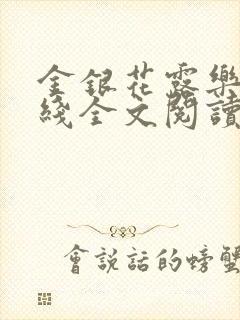 金銀花露樂
綫全文閱讀
會說話的螃蟹